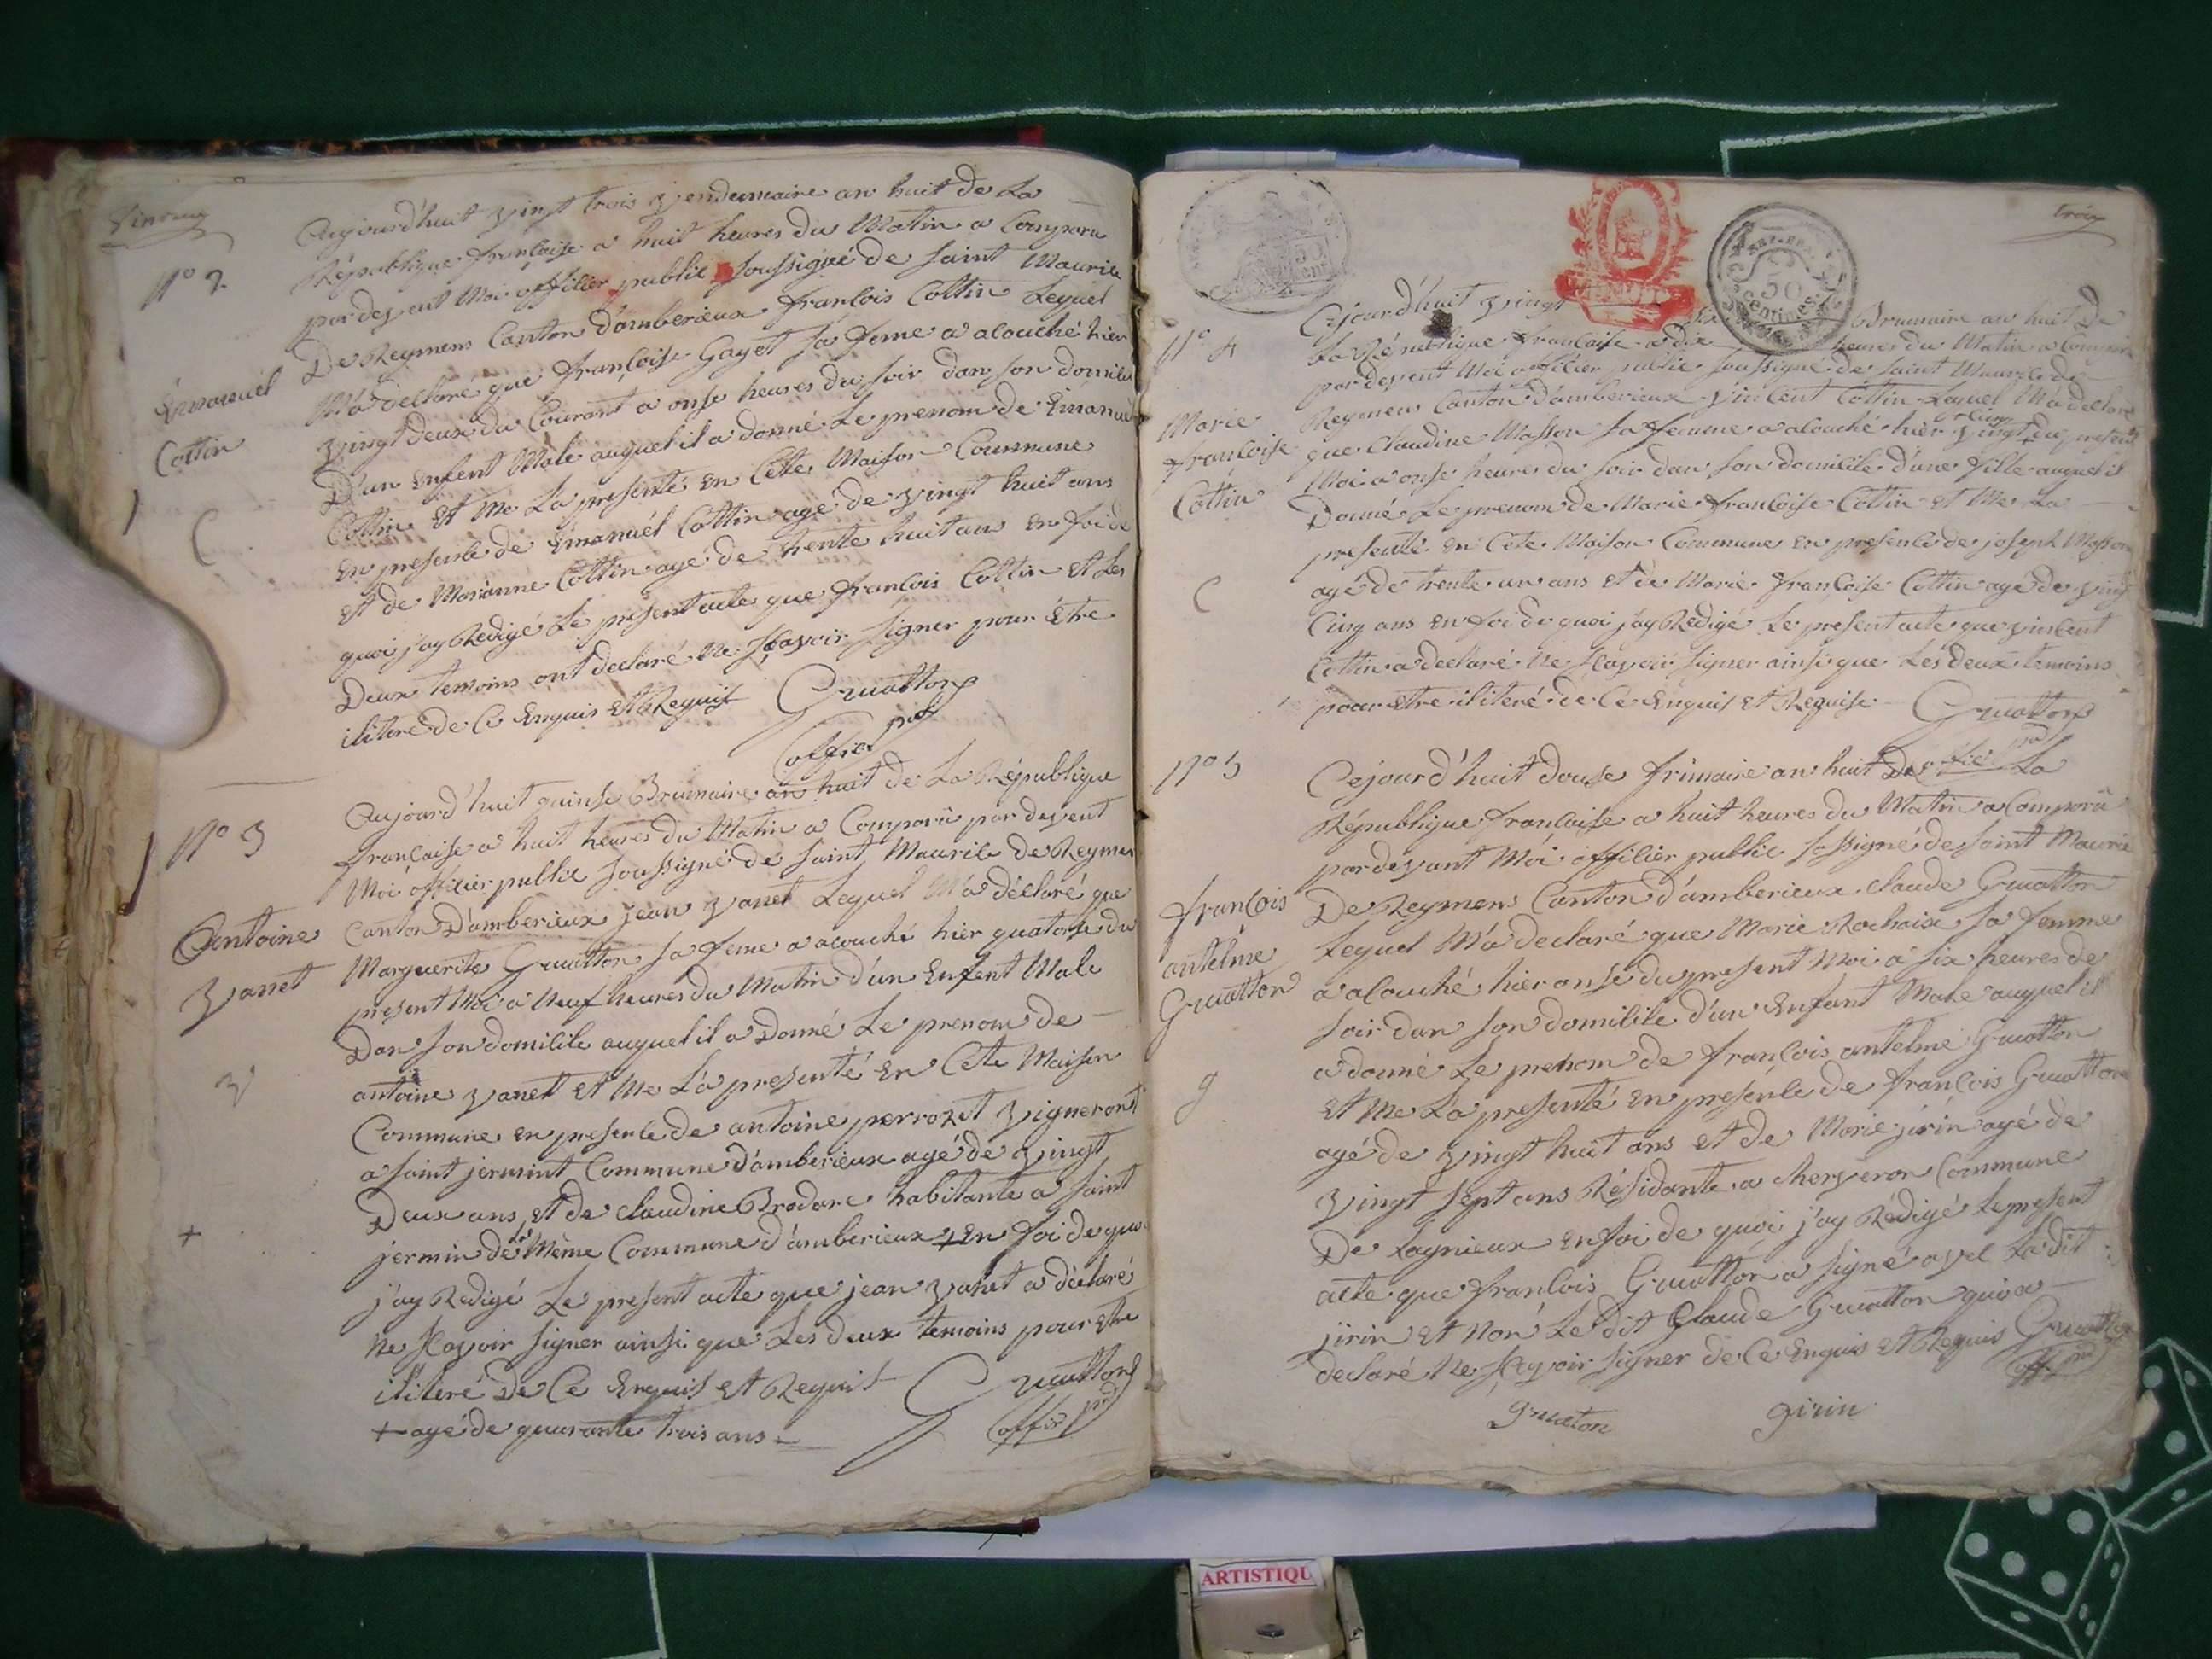 N° 2
Emanuel
Cottin
C
Aujourd'huit vingt trois vendemaire an huit de La
République française a huit heures du Matin a Comparu
par devent Moi officier public soussigné de saint Maurice
De Reymens Canton d'amberieux françois Cottin Lequel
M'a declaré que françoise Gayet sa feme a acouché hier
vingt deux du Courant a onse heures du soir dan son domicile
D'un enfent Male auquel il a donné Le prenom de Emanuel
Cottin et Me La presenté en Cette Maison Commune
en presence de Emanuel Cottin agé de vingt huit ans
et de Marianne Cottin agé de trente huit ans en foi de
quoi j'ay Redigé Le present acte que françois Cottin et Les
Deux temoins ont declaré Ne sçavoir signer pour être
ilitere de Ce Enquis et Requis Gruatton
offier
N° 3
Antoine
vanet
v
Aujourd'huit quinse Brumaire an huit de La République
française a huit heures du Matin a Comparu par devent
Moi officier public soussigné de saint Maurice de Reymens
Canton D'amberieux jean vanet Lequel M'a déclaré que
Marguerite Gruatton sa feme a acouché hier quatorse du
present Moi a Neuf heures du Matin d'un enfent Male
Dan son domicile auquel il a Donné Le prenom de
antoine vanet et Me L'a presenté en Cete Maison
Commune en presence de antoine perrozet vigneront
a saint jermint Commune d'amberieux agé de vingt
Deux ans et de claudine Brodare habitante a saint
jermin de la Même Commune d'amberieux + en foi de quoi
j'ay Redigé Le present acte que jean vanet a déclaré
Ne sçavoir signer ainsi que Les deux temoins pour etre
ilitere De Ce Enquis et Requit Gruatton
+ agé de quarante trois ans offier
trois
50
centimes
N° 4
Marie
françoise
Cottin
C
Cejourd'huit vingt six Brumaire an huit De
La République française a dix heures du Matin a Comparu
par devent Moi officier public soussigné de saint Maurice de
Reymens Canton d'amberieux vincent Cottin Lequel M'a declaré
que claudine Masson sa femme a acouché hier vingt cinq du present
Moi a onse heure du soir dan son domicile d'une fille auquel il
Donné Le prenom de Marie françoise Cottin et Me La
presenté en Cete Maison Commune en presence de joseph Masson
agé de trente un ans et de Marie françoise Cottin agé de vingt
Cinq ans en foi de quoi j'ay Redigé Le present acte que vincent
Cottin a declaré Ne sçavoir signer ainsi que Les deux temoins
pour etre ilitere de Ce Enquis et Requise Gruatton
offier
N° 5
françois
antelme
Gruatton
g
Cejourd'huit douse frimaire an huit De La
République française a huit heures du Matin a Comparu
par devant Moi officier public sossigné de saint Maurice
De Reymens Canton d'amberieux claude Gruatton
Lequel M'a declaré que Marie Rochaix sa femme
a acouché hier onse du present Moi a six heures de
soir dan son domicile d'un enfant Male auquel il
a donné Le prenom de françois antelme Gruatton
et Me L'a presenté en presence de françois Gruatton
agé de vingt huit ans et de Marie jirin agé de
vingt sept ans Résidante a cherveron Commune
De Lagnieux en foi de quoi j'ay Redigé Le present
acte que françois Gruatton a signé avec La dit
jirin et Non Le dit Claude Gruatton qui a
declaré Ne sçavoir signer de Ce Enquis et Requis Gruatton
gruaton girin
ARTISTIQU